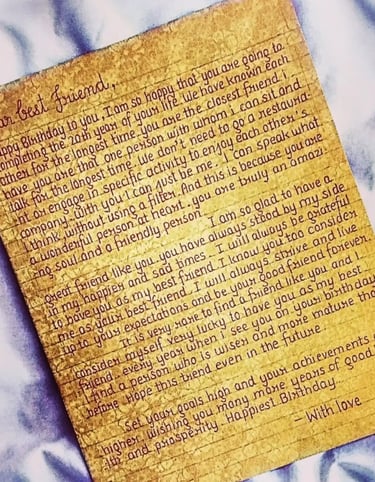 ar best friend,
appy Birthday to you, I am so happy that you are going to
completing the 20th year of your life. We have known each
other for the longest time. you are the closest friend I
have. you are that one person with whom I can sit and
talk for the longest time. We don't need to go a restaura
nt or engage in specific activity to enjoy each other's
company. With you I can just be me. I can speak what
I think without using a filter. And this is because you are
a wonderful person at heart, you are truly an amazi
ng soul and a friendly person
I am so glad to have a
great friend like you. you have always stood by my side
in my happier and sad times. I will always be grateful
to have you as my best friend. I know you too consider
me as your best friend. I will always strive and live
up to your expectations and be your good friend forever.
It is very rare to find a friend like you and I
consider myself very lucky to have you as my best
friend. every year when I see you on your birthday
I find a person who is wiser and more mature tha
before. I hope this trend even in the future.
Set your goals high and your achievements
higher. wishing you many more years of good
and prosperity. Happiest Birthday
- With love